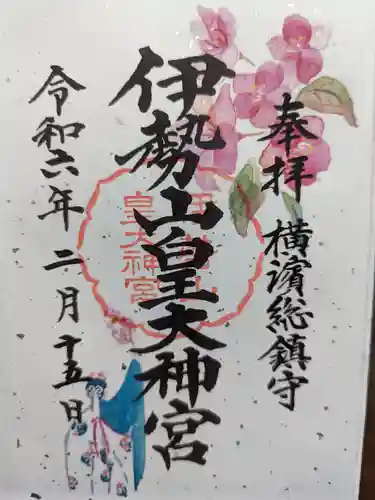 奉拝 横濱総鎮守
伊勢山皇大神宮
令和六年二月十五日
伊勢山
皇大神宮